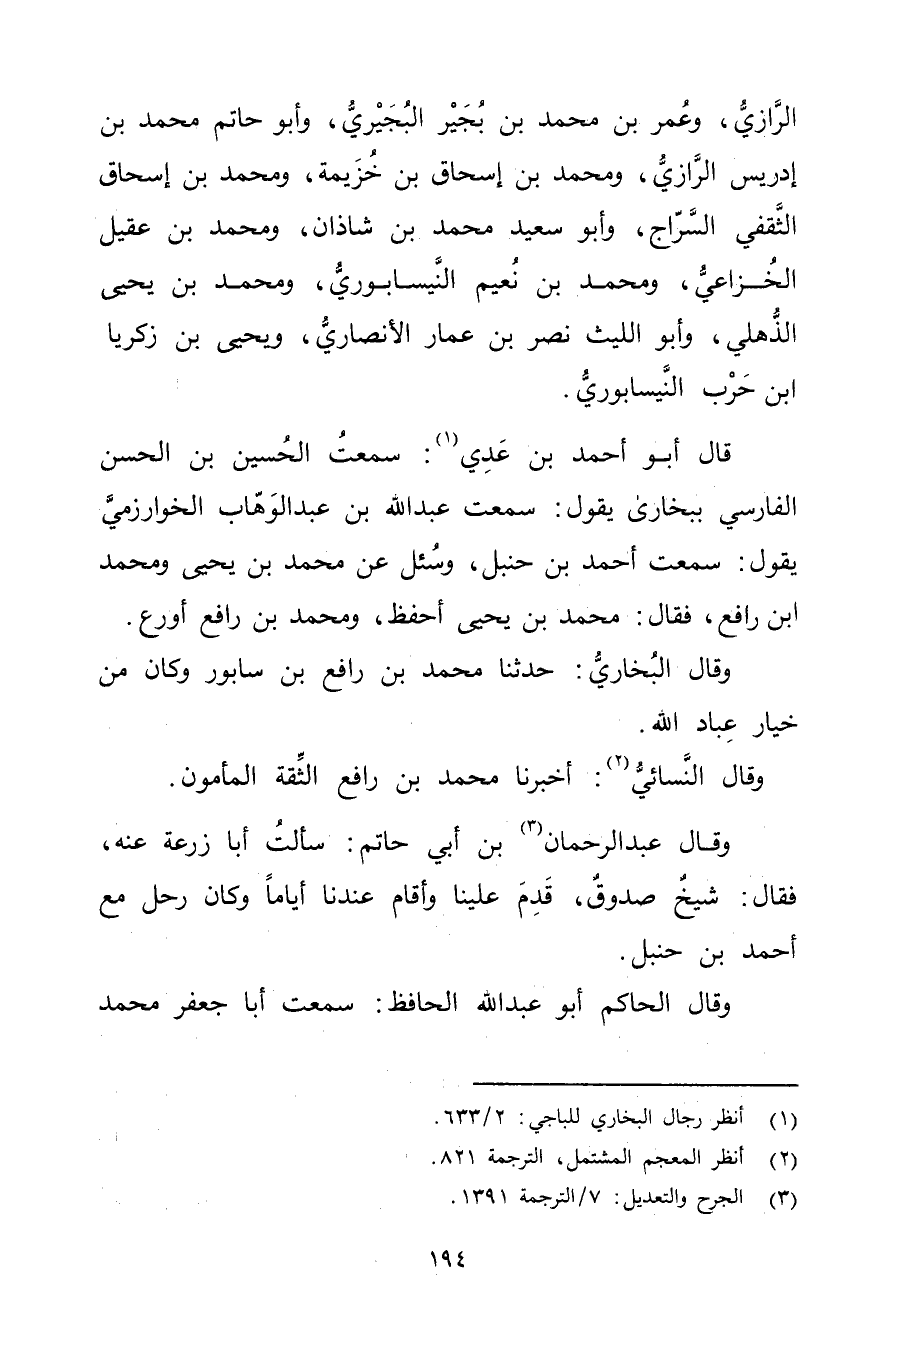 الرَّازيُّ، وعُمر بن محمد بن بُجَيْر البُجَيْريُّ، وأبو حاتم محمد بن
إدريس الرَّازيُّ، ومحمد بن إسحاق بن خُزَيمة، ومحمد بن إسحاق
الثَّقفي السَّرّاج، وأبو سعيد محمد بن شاذان، ومحمد بن عقيل
الخُـزاعيُّ، ومحمـد بن نُعيم النَّيسـابـوريُّ، ومحمـد بن يحيى
الذُّهلي، وأبو الليث نصر بن عمار الأنصاريُّ، ويحيى بن زكريا
ابن حَرْب النَّيسابوريُّ.
قال أبـو أحمد بن عَدِي(١): سمعتُ الحُسين بن الحسن
الفارسي ببخارىٰ يقول: سمعت عبدالله بن عبدالوَهّاب الخوارزميَّ
يقول: سمعت أحمد بن حنبل، وسُئل عن محمد بن يحيى ومحمد
ابن رافع، فقال: محمد بن يحيى أحفظ، ومحمد بن رافع أورع.
وقال البُخاريُّ: حدثنا محمد بن رافع بن سابور وكان من
خيار عِباد الله.
وقال النَّسائيُّ(٢): أخبرنا محمد بن رافع الثِّقة المأمون.
وقـال عبدالرحمان(٣) بن أبي حاتم: سألتُ أبا زرعة عنه،
فقال: شيخٌ صدوقٌ، قَدِمَ علينا وأقام عندنا أياماً وكان رحل مع
أحمد بن حنبل.
وقال الحاكم أبو عبدالله الحافظ: سمعت أبا جعفر محمد
(١) أنظر رجال البخاري للباجي: ٢/ ٦٣٣.
(٢) أنظر المعجم المشتمل، الترجمة ٨٢١.
(٣) الجرح والتعديل: ٧/ الترجمة ١٣٩١.
١٩٤